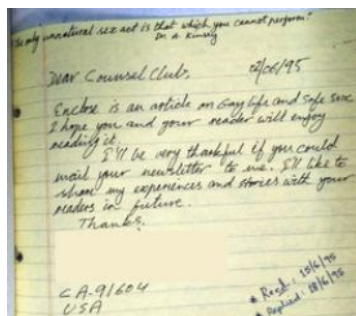 "The only unnatural sex act is that which you cannot perform."
Dr. A. Kinsey
Dear Counsel Club, 02/06/95
Enclose is an article on Gay life and Safe Sex
I hope you and your reader will enjoy
reading it.
I'll be very thankful if you could
mail your newsletter to me. I'll like to
share my experiences and stories with your
readers in future.
Thanks.
CA-91604
USA
• Recd: 15/6/95
• Replied: 18/6/95